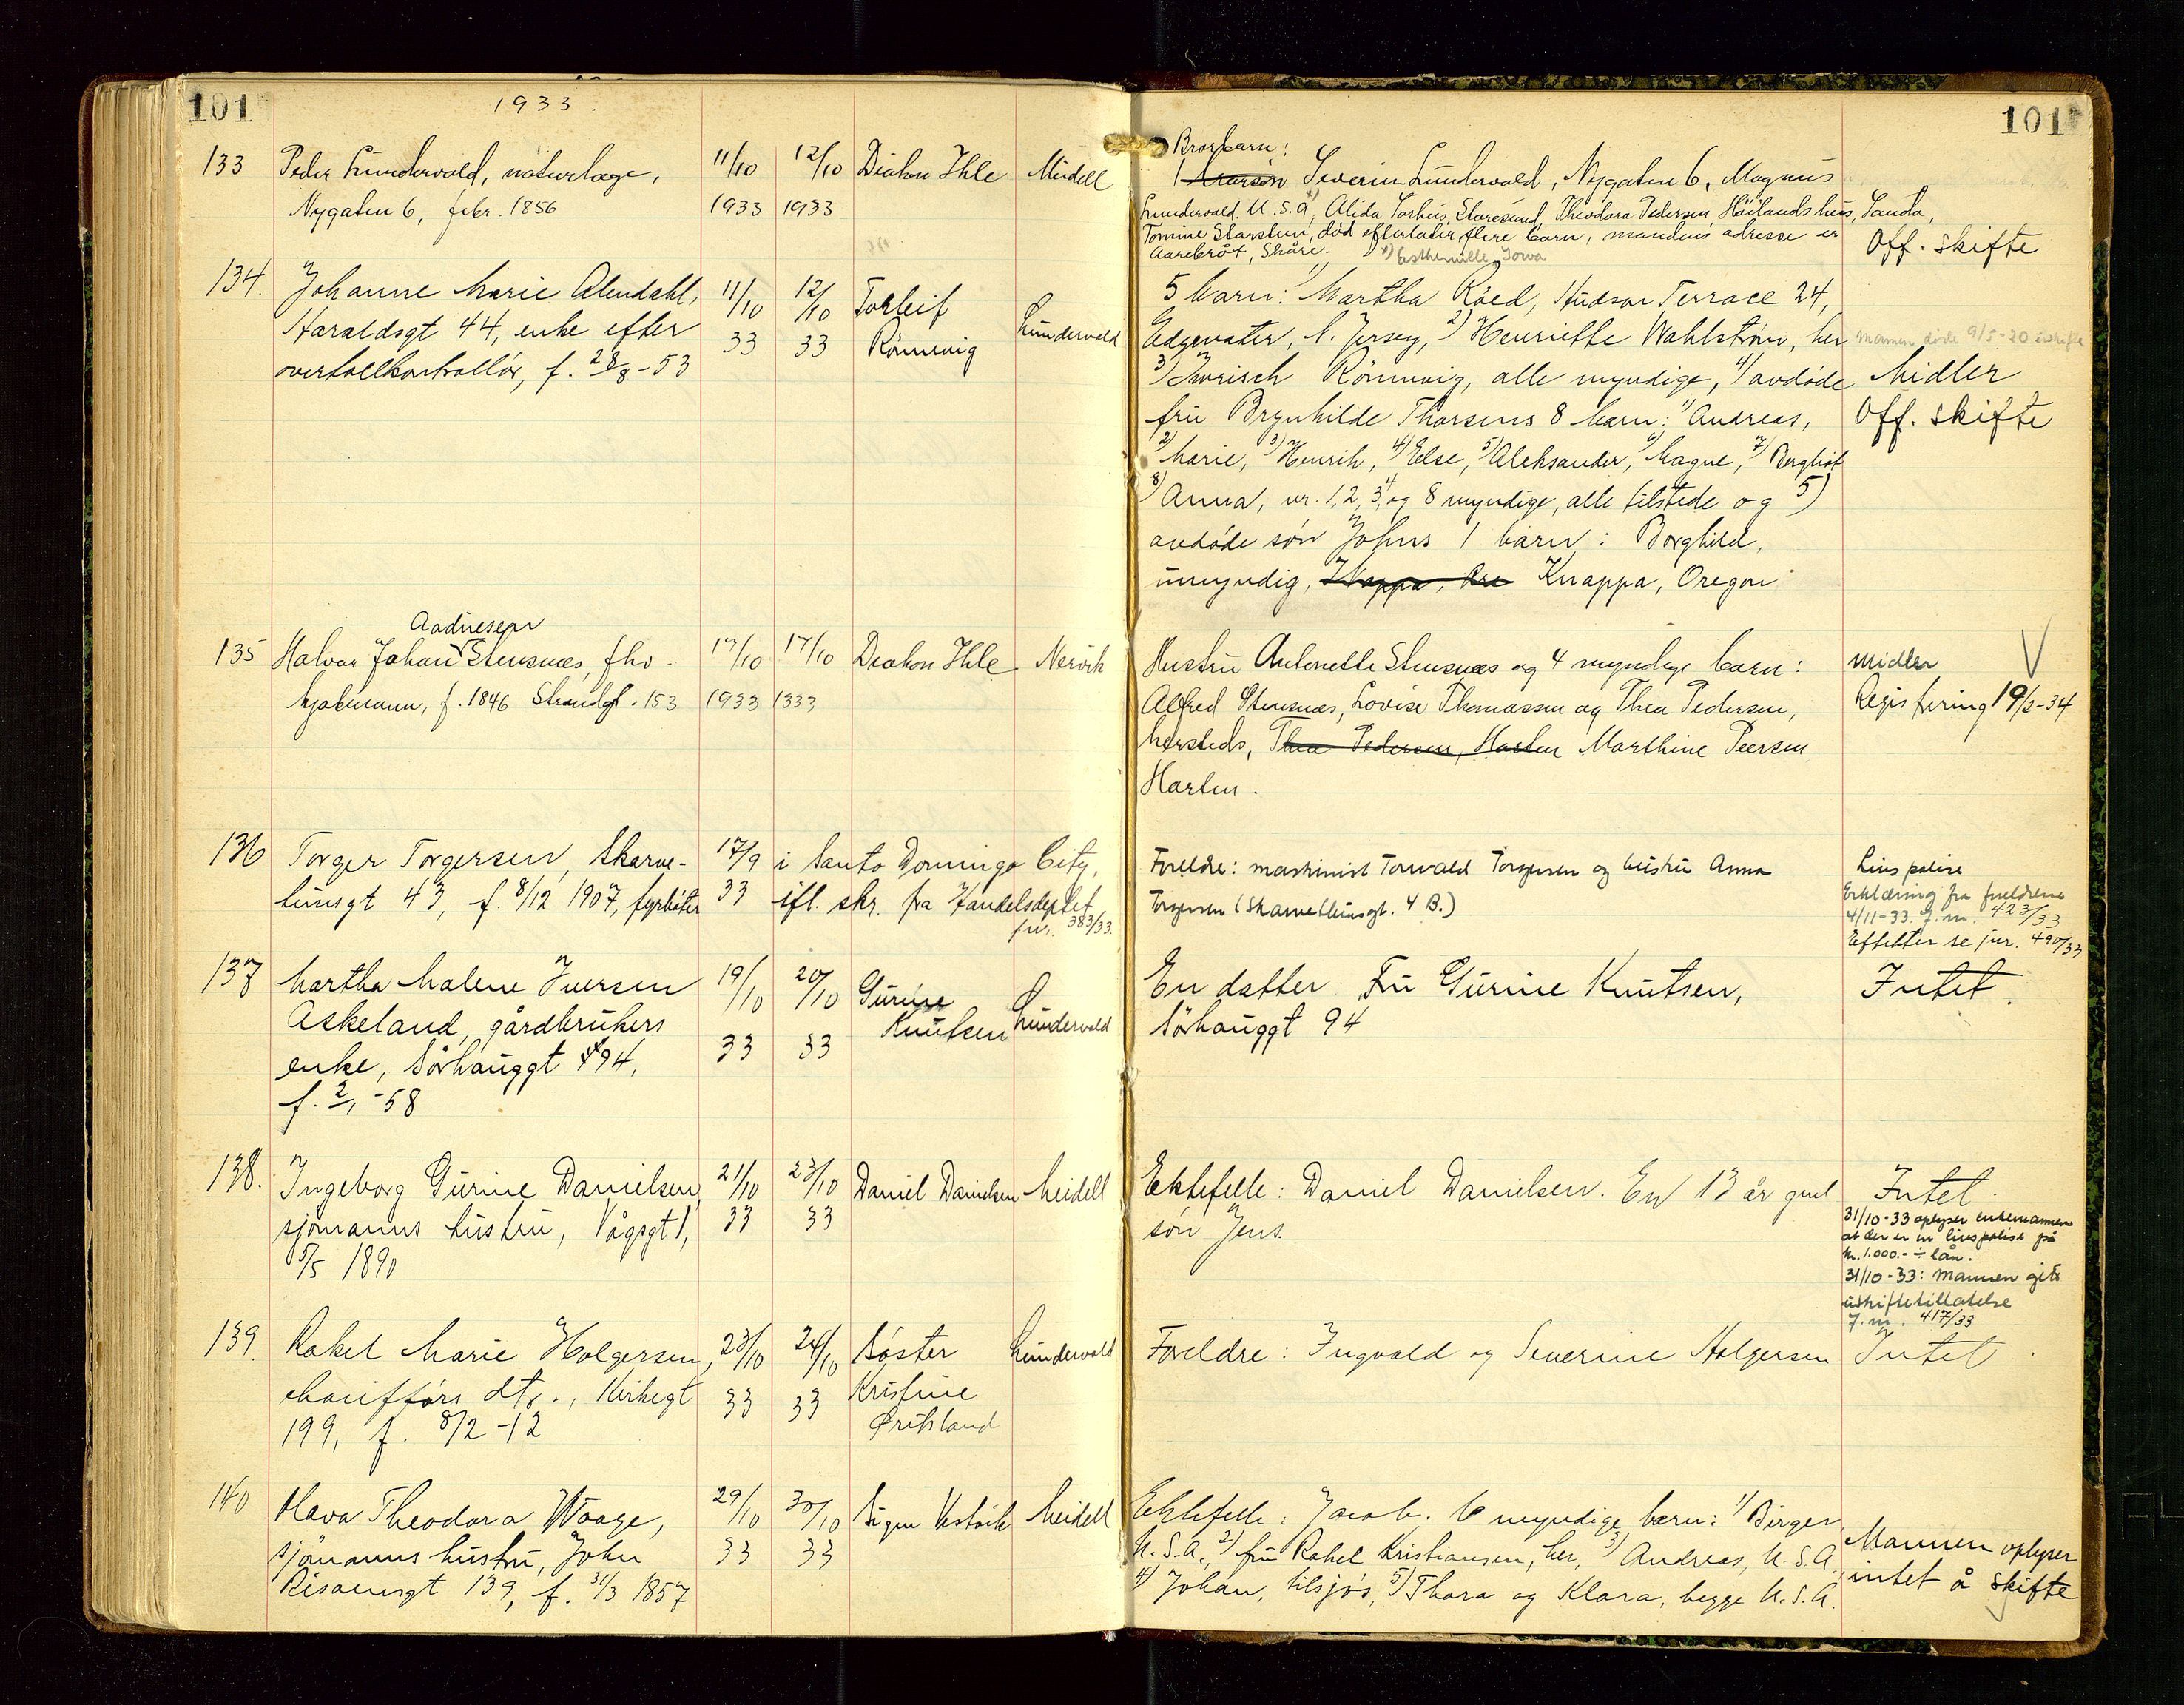 101
1933.
133 Peder Lundervold, naturlæge, 11/10 12/10 Diakon Ihle Meidell
Nygaten 6, febr. 1856 1933 1933
134. Johanne Marie Alendahl, 11/10 12/10 Torleif Lundervold
Haraldsgt 44, enke efter 33 33 Rönnevig
overtollkontrollör, f. 28/8-53
Aadnesen
135 Halvor Johan Stensnæs, fhv. 17/10 17/10 Diakon Ihle Nervik
f. 1846 Strandgt. 153 1933 1333
136 Torger Torgersen, Skarve- 17/9 i Santo Domingo City,
lünsgt 43, f. 8/12 1907, fyrbøter 33 ifl. skr. fra Handelsdeptet
383/33.
137 Martha Malene Iversen 19/10 20/10 Gürine Lundervold
Askeland, gårdbrukers Knutsen
enke, Sörhauggt 94, 33 33
f. 2/1-58
138. Ingeborg Gürine Danielsen, 21/10 23/10 Daniel Danielsen Meidell
sjömanns hustru, Vågsgt 1, 33 33
5/5 1890
139. Rakel Marie Holgersen, 23/10 24/10 Söster Lundervold
chaufförs dtr., Kirkegt 33 33 Kristine
199, f. 8/2-12 Ørksland
140 Olava Theodora Waage, 29/10 30/10 Signe Vestvik Meidell
sjömanns hustru, John 33 33
Risøensgt 139, f. 31/3 1857
101
Brorbarn:
Severin Lundervold, Nygaten 6, Magnus
Lundervold. U.S.A, Alida Sørhus, Skaresund, Theodora Pedersen Höilandshus, Sanda,
Tomine Skarstein, død efterlater flere barn, mandens adresse er
Aarebrot, Skåre. 1) Estherville Iowa Off. skifte
5 barn: 1) Martha Röed, Hudson Terrace 24,
Edgewater, N. Jersey, 2) Henriette Wahlström, her mannen døde 9/5-20 uskifte
3) Rönnevig, alle myndige, 4) avdöde Midler
fru Brynhilde Thorsens 8 barn: 1) Andreas, Off. skifte
2) Marie, 3) Henrik, 4) Else, 5) Aleksander, 6) Magne, 7) Bergliot
8) Anna, nr. 1, 2, 3, 4 og 8 myndige, alle tilstede og 5)
avdöde sön Johns 1 barn: Borghild,
umyndig, Knappa, Oregon
Hustru Antonette Stensnæs og 4 myndige barn: midler
Alfred Stensnæs, Lovise Thomassen og Thea Pedersen, Registrering 19/3-34
hersteds, Thea Pedersen, Marthine Peersen
Forældre: maskinist Torvald Torgersen og hustru Anna Livspolise
Torgersen (Skarvelünsgt. 4 B.) Erklæring fra foreldrene
4/11-33. J.m. 423/33
Effekter se jnr. 490/33
En datter: Fru Gürine Knutsen, Intet.
Sörhauggt 94
Ektefelle: Daniel Danielsen. En 13 år gml Intet.
sön Jens.
31/10-33 oplyser enkemannen
at der er en livspolise på
kr. 1.000.- ÷ lån.
31/10-33: Mannen gitt
uskiftetillatelse
J.m. 417/33
Foreldre: Ingvald og Severine Holgersen Intet.
Ektefelle: Jacob. 6 myndige barn: 1) Birger
U.S.A., 2) fru Rakel Kristiansen, her, 3) Andreas, U.S.A. Mannen oplyser
4) Johan, tilsjös, 5) Thora og Klara, begge U.S.A. intet å skifte